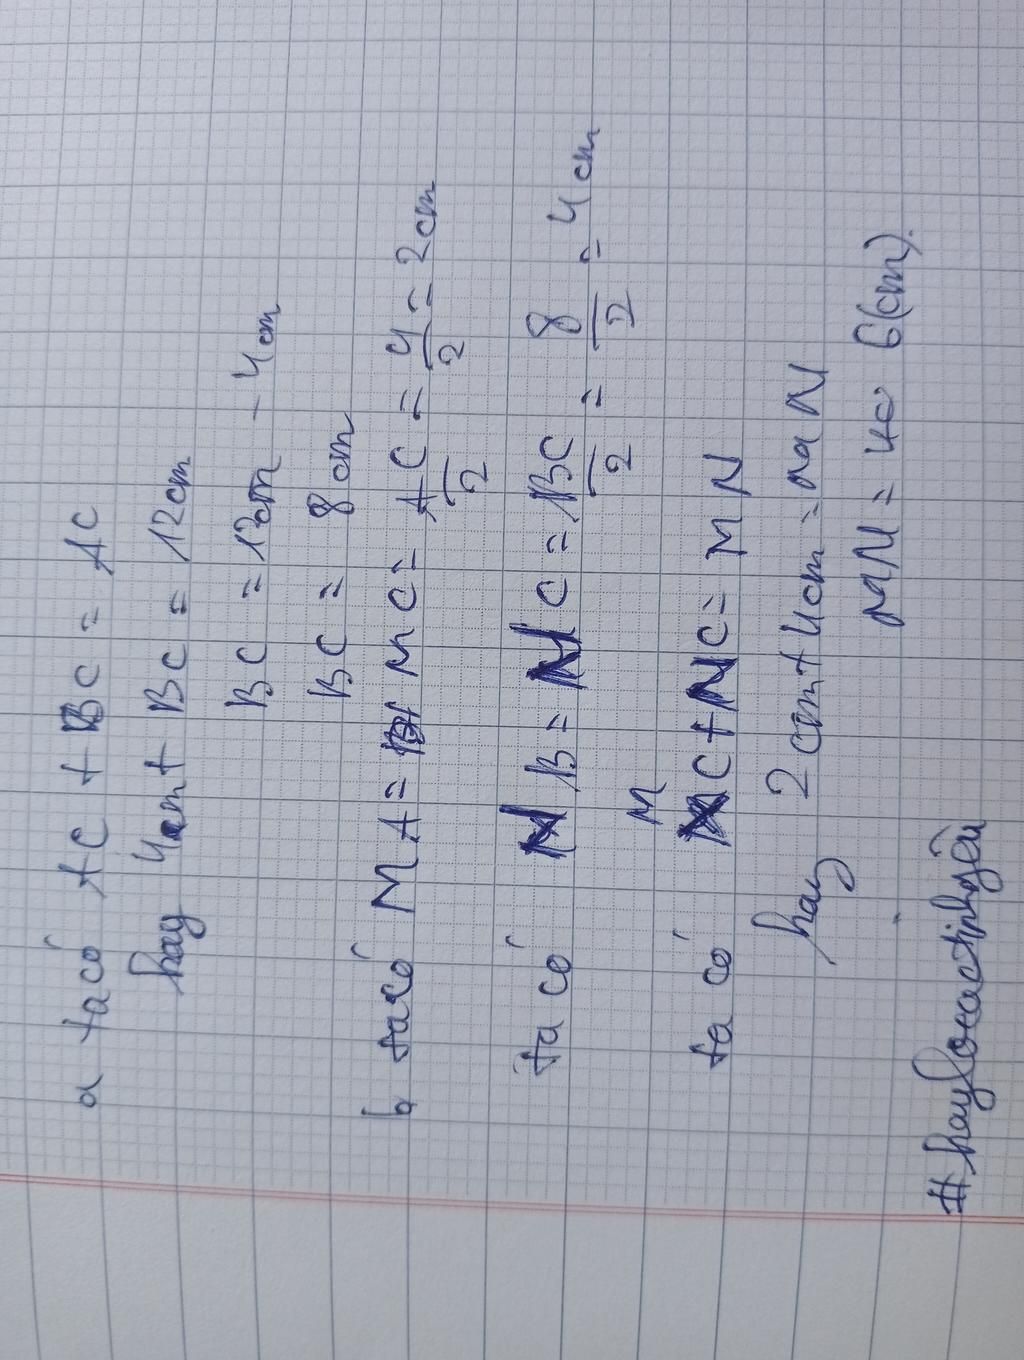 a ta có AC + BC = AC
hay 4cm + BC = 12cm
BC = 12cm - 4cm
BC = 8cm
b ta có MA = MC = AC/2 = 4/2 = 2cm
ta có NB = NC = BC/2 = 8/2 = 4cm
M
ta có C + NC = MN
hay 2cm + 4cm = MN
MN = 6(cm).